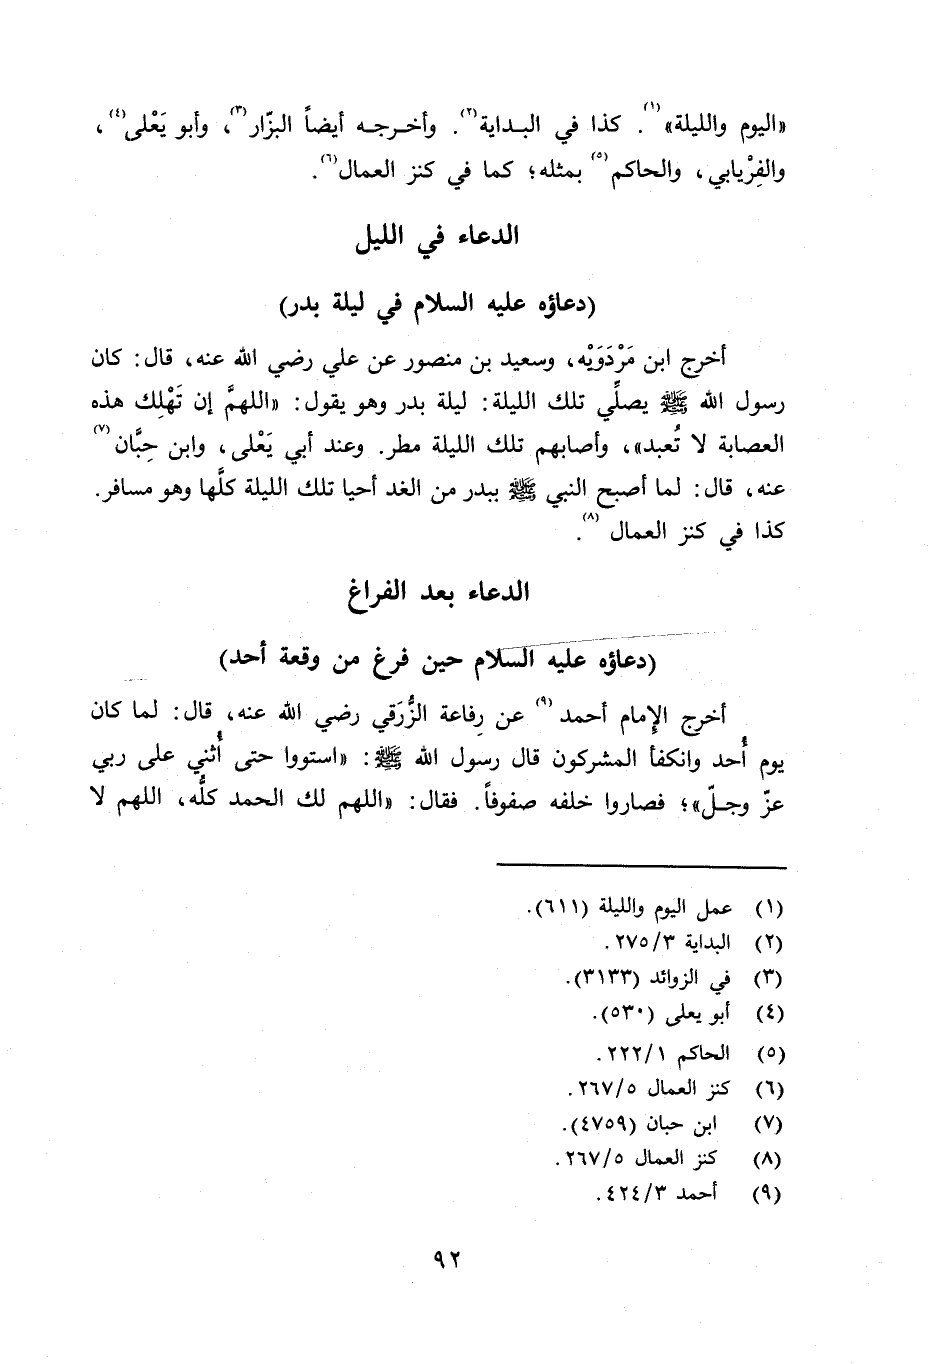 «اليوم والليلة»(١). كذا في البـداية(٢). وأخـرجـه أيضاً البزّار(٣)، وأبو يَعْلى(٤)،
والفِرْيابي، والحاكم(٥) بمثله؛ كما في كنز العمال(٦).
الدعاء في الليل
(دعاؤه عليه السلام في ليلة بدر)
أخرج ابن مَرْدَوَيْه، وسعيد بن منصور عن علي رضي الله عنه، قال: كان
رسول الله ﷺ يصلِّي تلك الليلة: ليلة بدر وهو يقول: «اللهمَّ إن تَهْلِك هذه
العصابة لا تُعبد»، وأصابهم تلك الليلة مطر. وعند أبي يَعْلى، وابن حِبَّان(٧)
عنه، قال: لما أصبح النبي ﷺ ببدر من الغد أحيا تلك الليلة كلَّها وهو مسافر.
كذا في كنز العمال(٨).
الدعاء بعد الفراغ
(دعاؤه عليه السلام حين فرغ من وقعة أحد)
أخرج الإمام أحمد(٩) عن رِفاعة الزُّرَقي رضي الله عنه، قال: لما كان
يوم أُحد وانكفأ المشركون قال رسول الله ﷺ: «استووا حتى أُثني على ربي
عزّ وجـلّ»؛ فصاروا خلفه صفوفاً. فقال: «اللهم لك الحمد كلُّه، اللهم لا
(١) عمل اليوم والليلة (٦١١).
(٢) البداية ٢٧٥/٣.
(٣) في الزوائد (٣١٣٣).
(٤) أبو يعلى (٥٣٠).
(٥) الحاكم ٢٢٢/١.
(٦) كنز العمال ٢٦٧/٥.
(٧) ابن حبان (٤٧٥٩).
(٨) كنز العمال ٢٦٧/٥.
(٩) أحمد ٤٢٤/٣.
٩٢